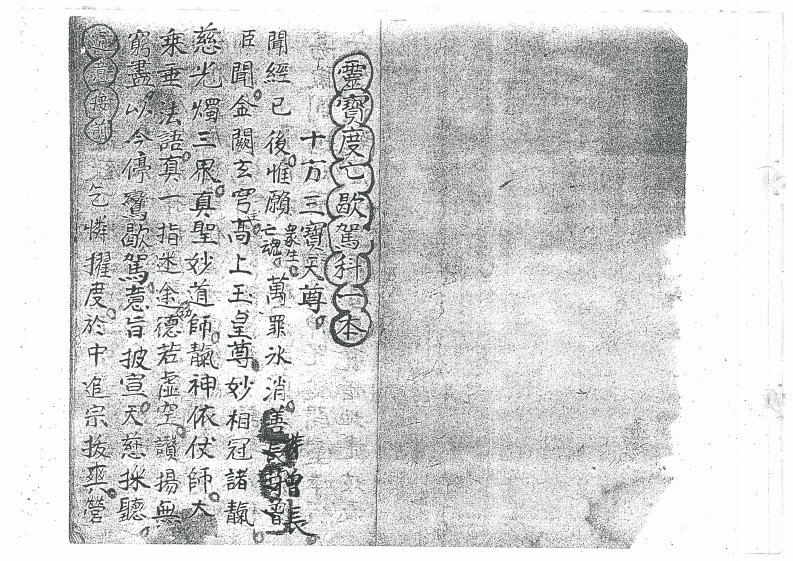 靈寶度亡歇駕科一本
十方三寶天尊
聞經已後惟願亡魂眾生萬罪冰消善長普增長
臣聞金闕玄穹高上玉皇尊妙相冠諸靝
慈光燭三界真聖妙道師靝神依伏師大
乘垂法語真一指迷途德若虛空讚揚無
窮盡以今停鸞歇駕意旨披宣天慈採聽
意接前乞憐擢度於中追宗拔爽營